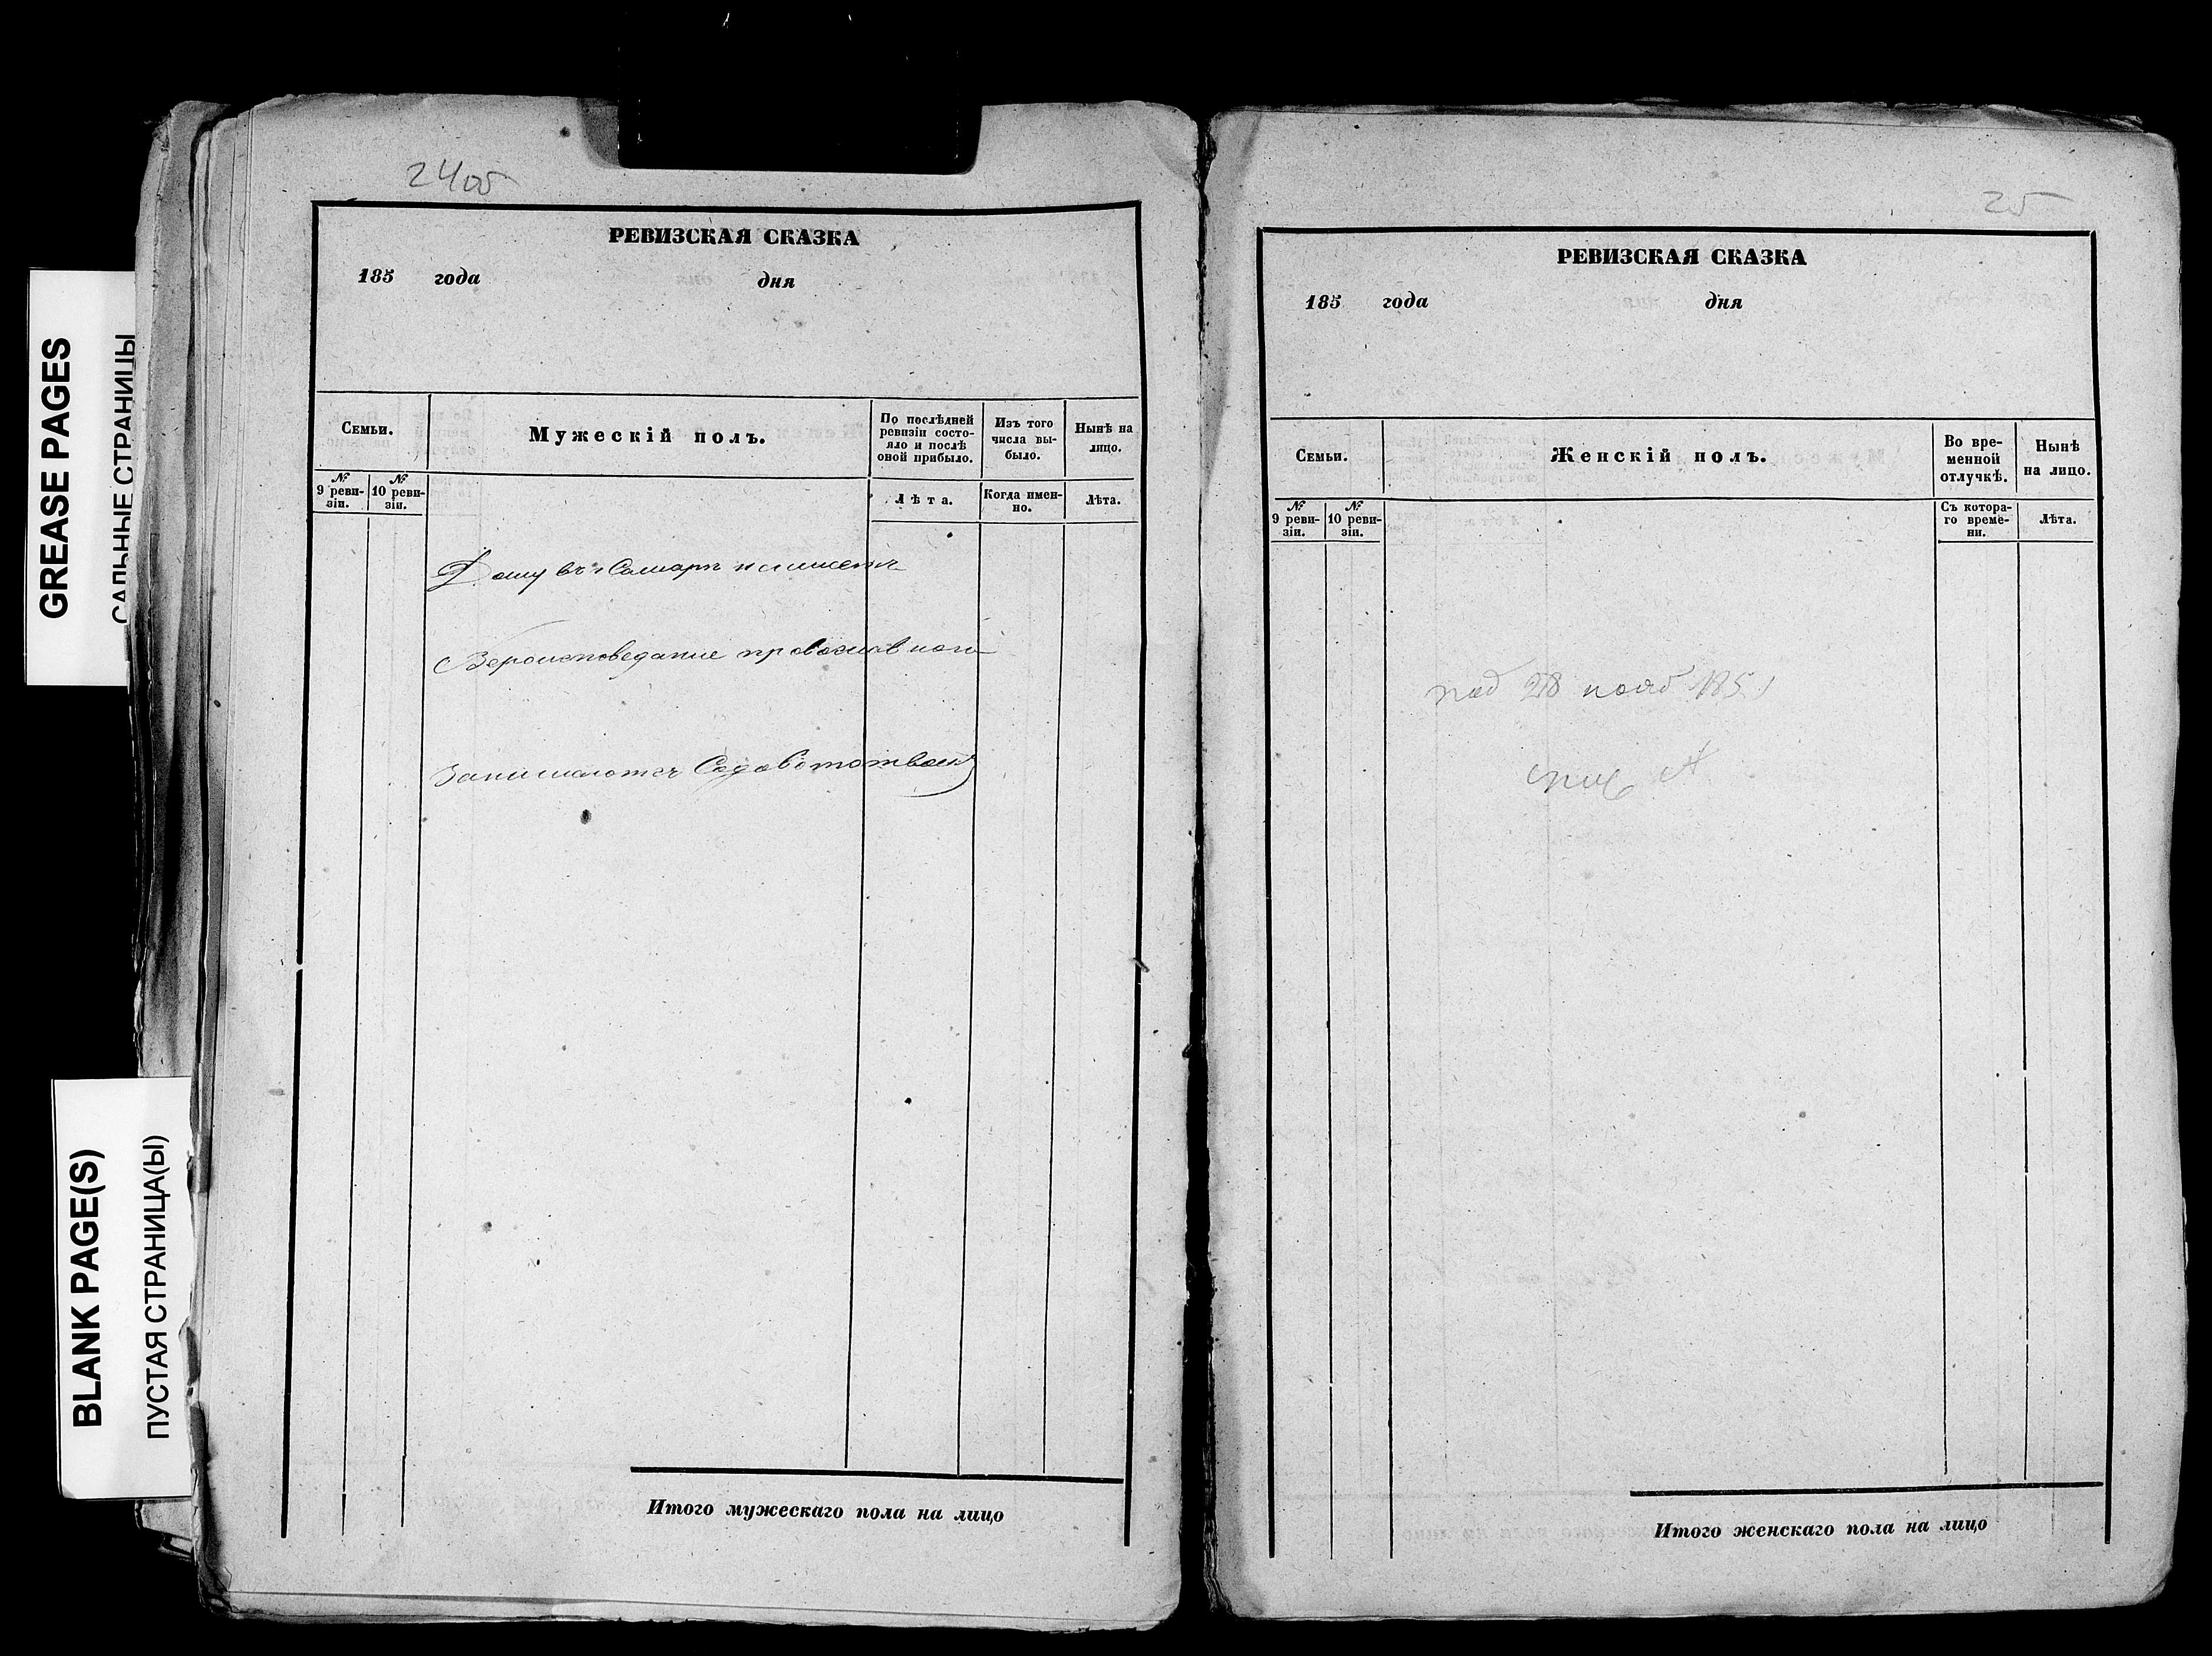 GREASE PAGES
САЛЬНЫЕ СТРАНИЦЫ
BLANK PAGE(S)
ПУСТАЯ СТРАНИЦА(Ы)
24об
РЕВИЗСКАЯ СКАЗКА
185 года дня
Семьи.
Мужескій полъ.
По послѣдней
ревизіи состо-
яло и послѣ
оной прибыло.
Изъ того
числа вы-
было.
Нынѣ на
лицо.
№
9 реви-
зіи.
№
10 реви-
зіи.
Лѣта.
Когда имен-
но.
Лѣта.
Дому въ Самаре не имеетъ
Вероисповедание православного
Занимается Садоводствомъ
Итого мужескаго пола на лицо
25
РЕВИЗСКАЯ СКАЗКА
185 года дня
Семьи.
Женскій полъ.
Во вре-
менной
отлучкѣ.
Нынѣ
на лицо.
№
9 реви-
зіи.
№
10 реви-
зіи.
Съ котора-
го време-
ни.
Лѣта.
под 28 нояб 185
Итого женскаго пола на лицо